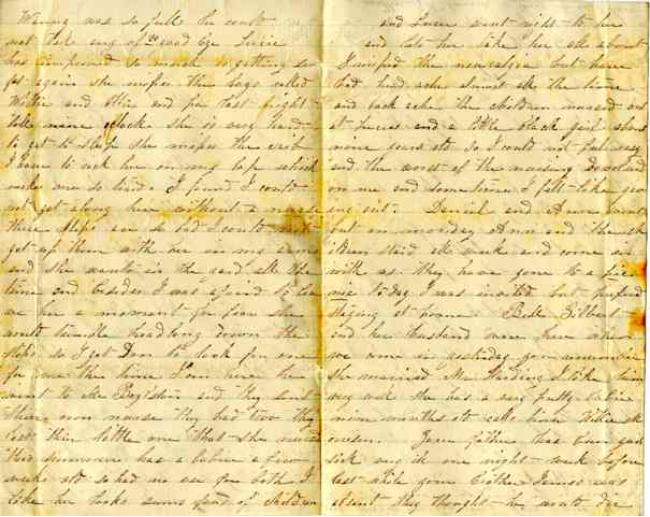 Wening was so full he could
not take any of us good bye Susie
has improved so much is getting so
fat again she misses the boys called
Willie and Ollie and for last night
till nine oclock she is very hard
to get to sleep she misses the crib
I have to rock her on my lap which
makes me so tired I found I could
not get along here without a nurse
these steps are so bad I could not
get up them with her in my arms
and she wants in the sand all the
time and besides I was afraid to leave
her a moment for fear she
would tumble headlong down the
steps so I got Dan to look for one
for me the time I came here he
went to Mr and they sent
their own nurse they had two they
lost their little one that she nursed
this summer has a babe a few
weeks old so had no use for both I
like her looks seems fond of children
and Susie went right to her
and lets her take her all about
I missed the neuralgia but have
had head ache almost all the time
and back ache the children
at and a little black girl about
nine years old so I could not feel easy
and the worst of the nursing devolved
on me and sometimes I felt like
out. Daniel and Anna went
out on monday Anna and the
children staid all week and come in
with us they have gone to a pic
nic today I was invited but prefered
staying at home. Belle Gilbert
and her husband were here when
we came in yesterday you remember
she married Mr Harding I like him
very well she has a very pretty babe
nine months old calls him Willie
Your father has been quite
sick one night week before
last while your brother James was
absent they thought he would die